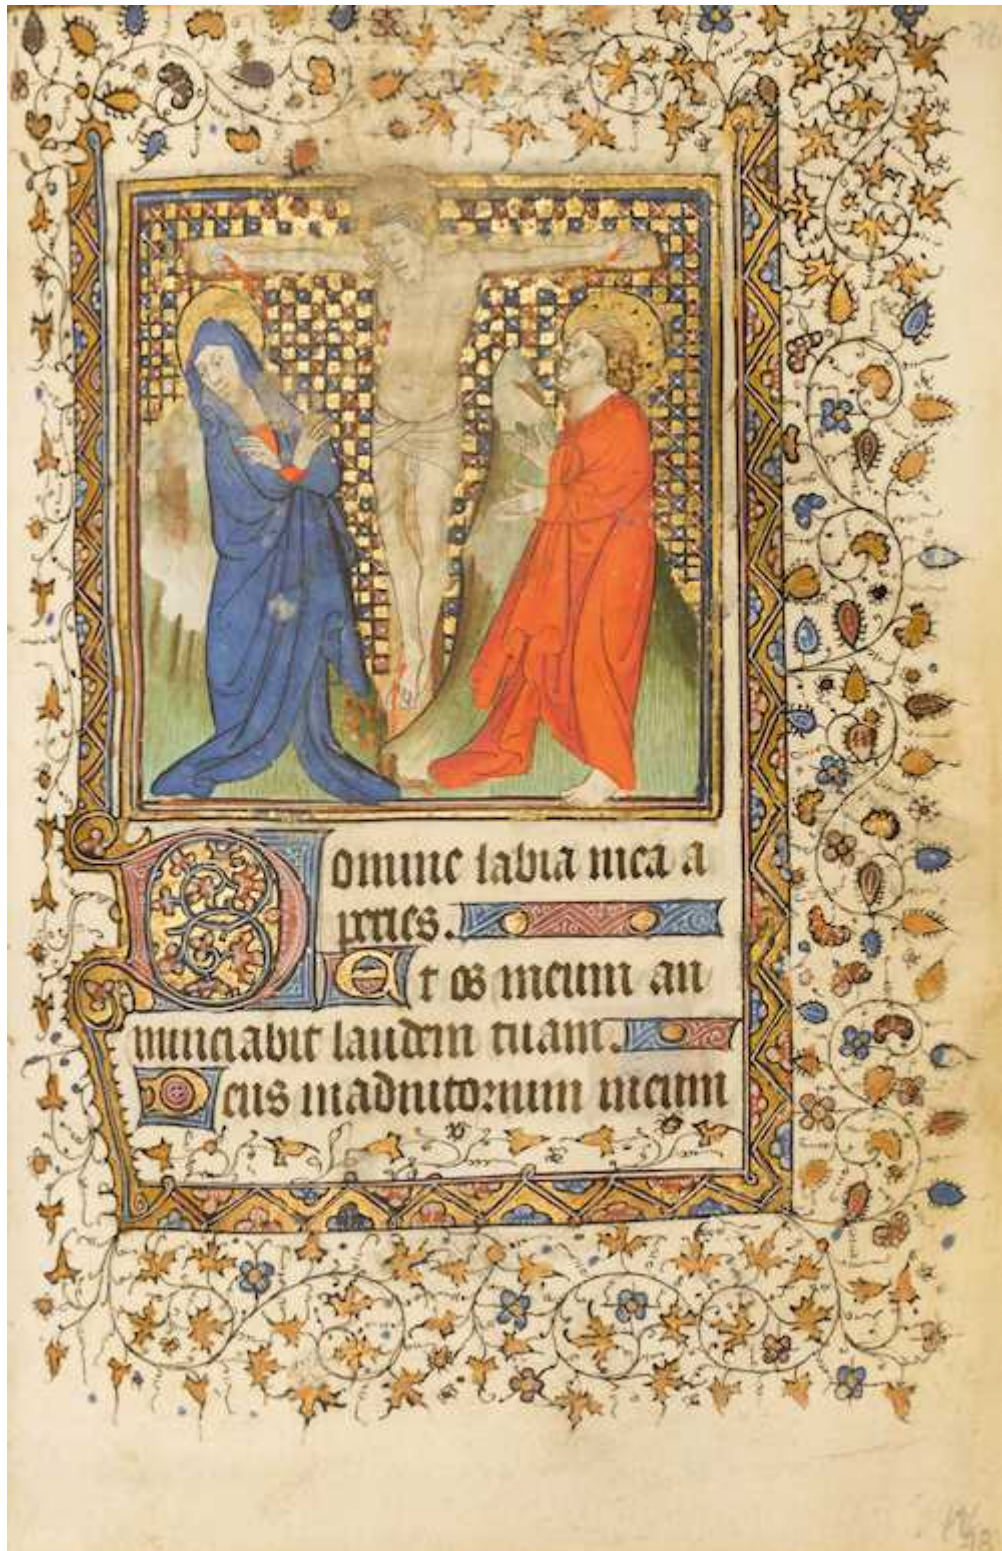 Domine labia mea a
peries.
Et os meum an
nunciabit laudem tuam.
Deus in adiutorium meum